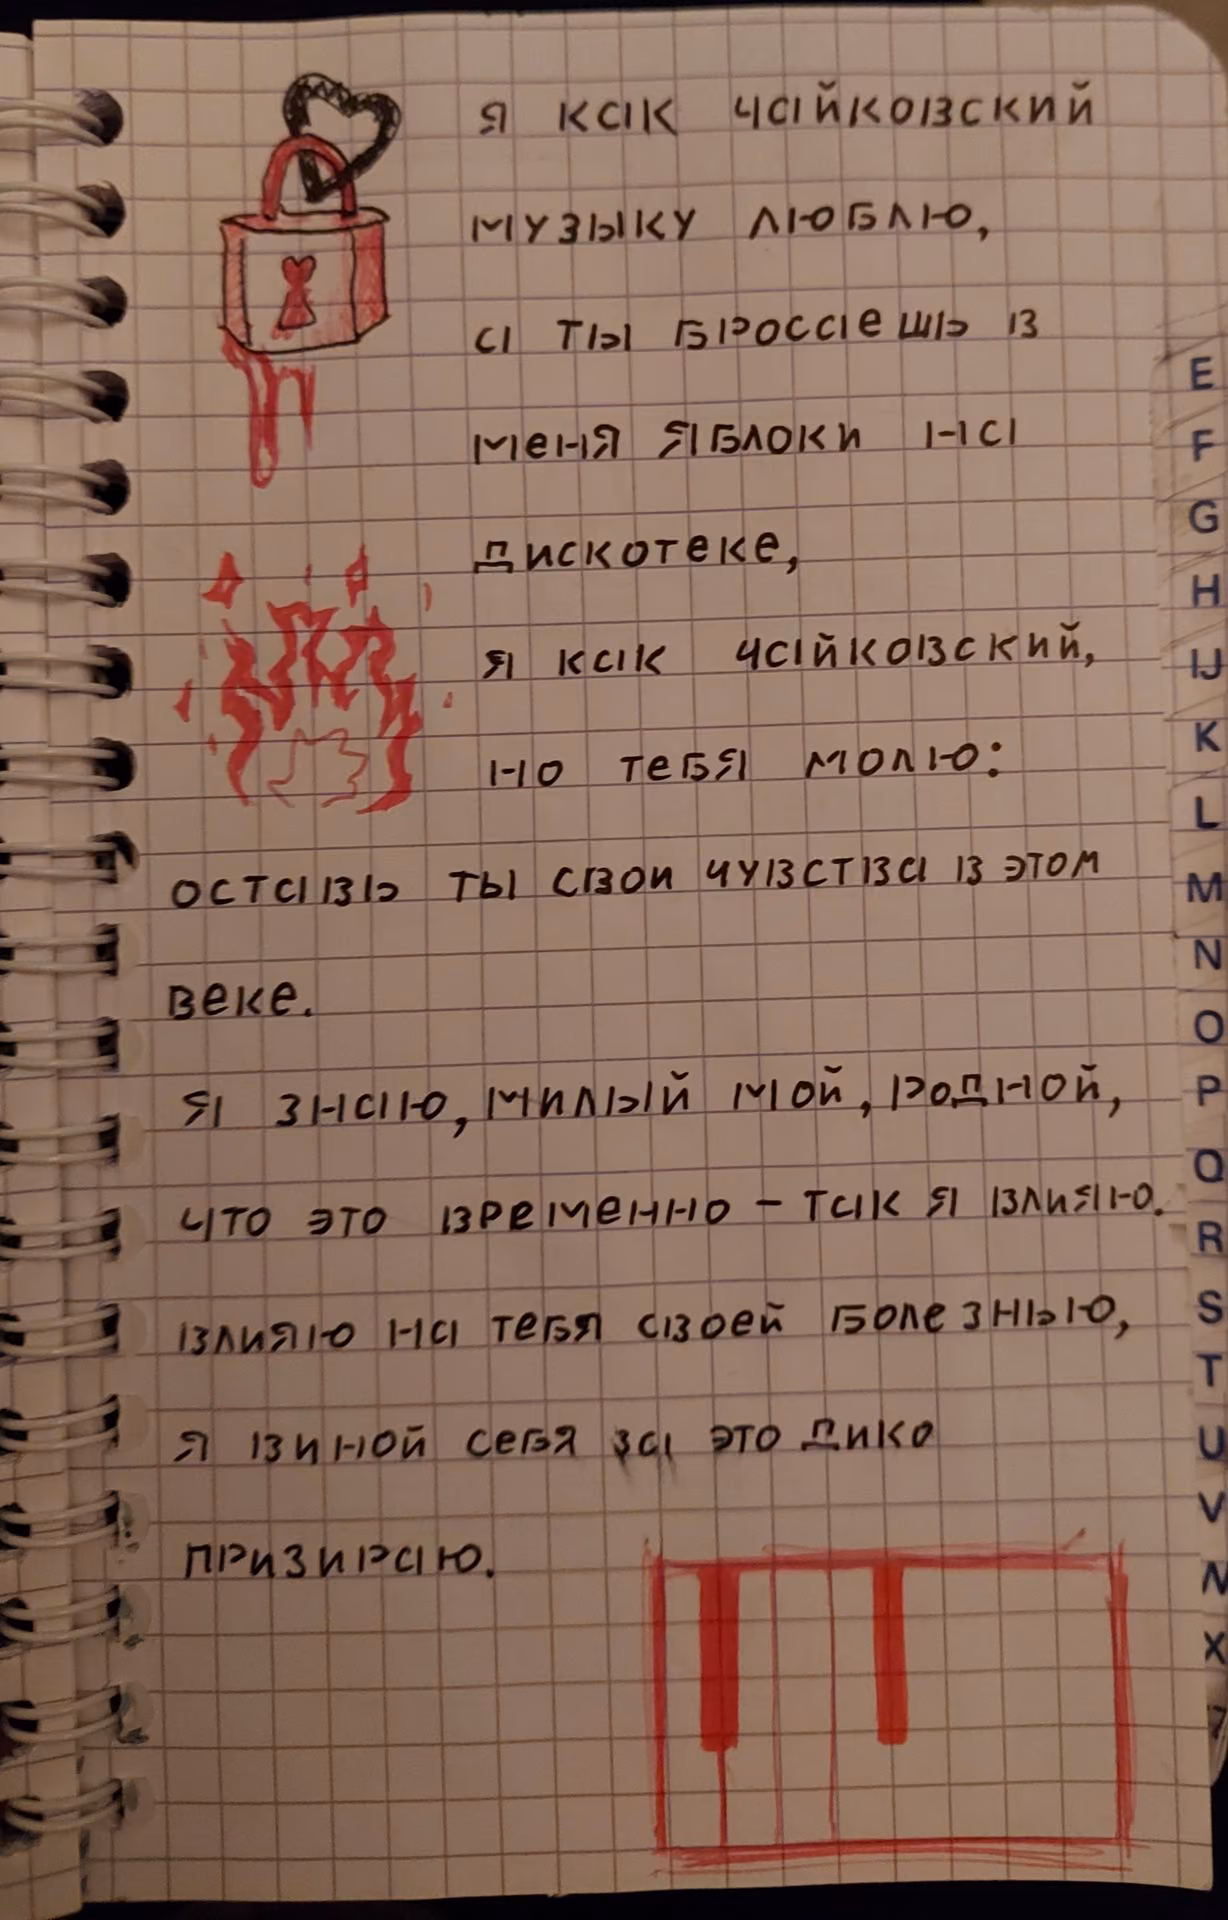 я как чайковский
музыку люблю,
а ты бросаешь в
меня яблоки на
дискотеке,
я как чайковский,
но тебя молю:
оставь ты свои чувства в этом
веке.
я знаю, милый мой, родной,
что это временно – так я влияю.
влияю на тебя своей болезнью,
я виной себя за это дико
призираю.
E
F
G
H
IJ
K
L
M
N
O
P
Q
R
S
T
U
V
X